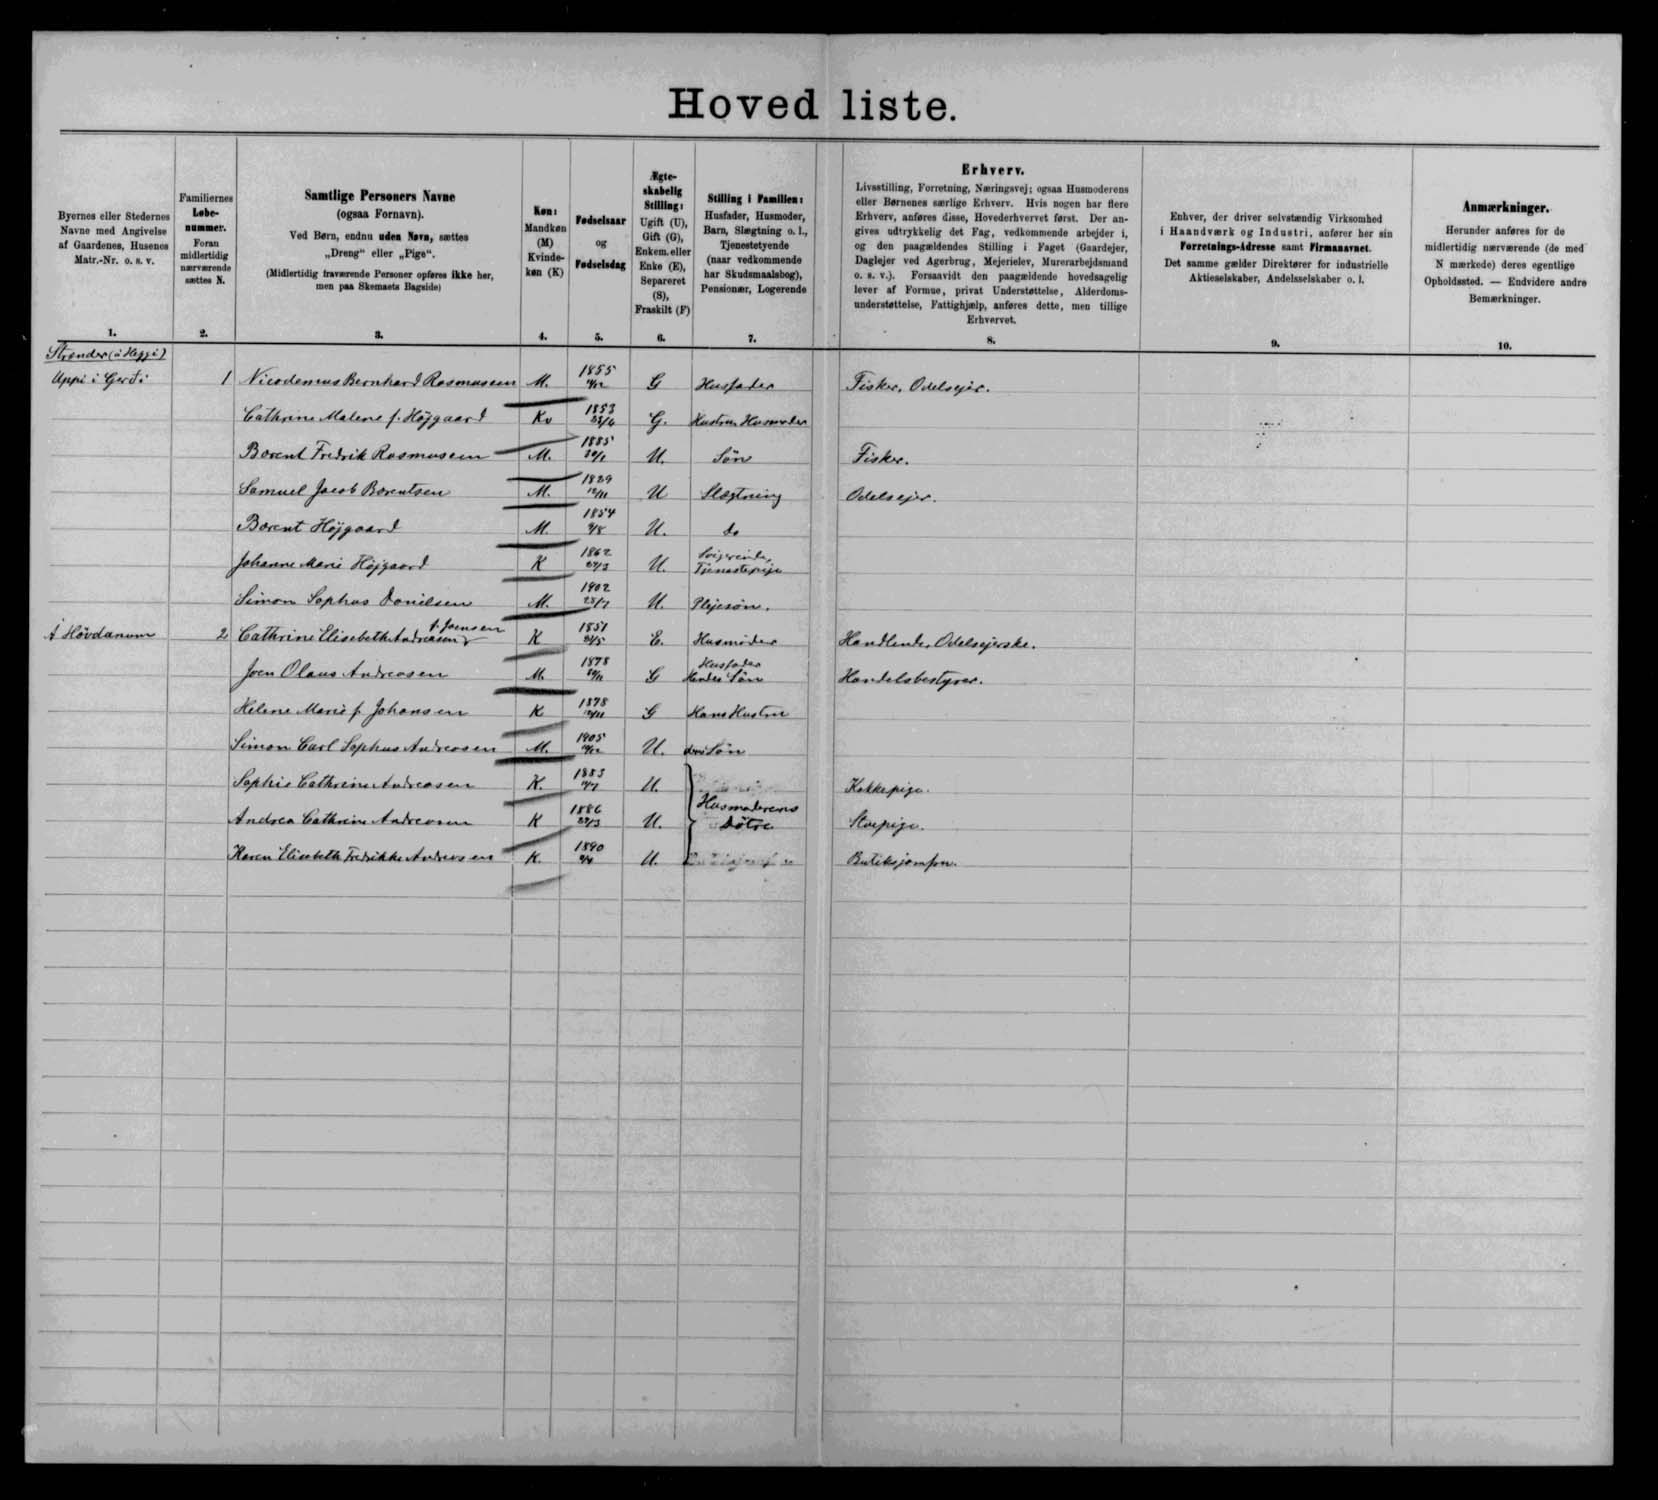 Hoved liste.
Byernes eller Stedernes
Navne med Angivelse
af Gaardenes, Husenes
Matr.-Nr. o. s. v.
1.
Familiernes
Løbe-
nummer.
Foran
midlertidig
nærværende
sættes N.
2.
Samtlige Personers Navne
(ogsaa Fornavn).
Ved Børn, endnu uden Navn, sættes
„Dreng“ eller „Pige“.
(Midlertidig fraværende Personer opføres ikke her,
men paa Skemaets Bagside)
3.
Køn:
Mandkøn
(M)
Kvinde-
køn (K)
4.
Fødselsaar
og
Fødselsdag
5.
Ægte-
skabelig
Stilling:
Ugift (U),
Gift (G),
Enkem. eller
Enke (E),
Separeret
(S),
Fraskilt (F)
6.
Stilling i Familien:
Husfader, Husmoder,
Barn, Slægtning o. l.,
Tjenestetyende
(naar vedkommende
har Skudsmaalsbog),
Pensionær, Logerende
7.
Erhverv.
Livsstilling, Forretning, Næringsvej; ogsaa Husmoderens
eller Børnenes særlige Erhverv. Hvis nogen har flere
Erhverv, anføres disse, Hovederhvervet først. Der an-
gives udtrykkelig det Fag, vedkommende arbejder i,
og den paagældendes Stilling i Faget (Gaardejer,
Daglejer ved Agerbrug, Mejerielev, Murerarbejdsmand
o. s. v.). Forsaavidt den paagældende hovedsagelig
lever af Formue, privat Understøttelse, Alderdoms-
understøttelse, Fattighjælp, anføres dette, men tillige
Erhvervet.
8.
Enhver, der driver selvstændig Virksomhed
i Haandværk og Industri, anfører her sin
Forretnings-Adresse samt Firmanavnet.
Det samme gælder Direktører for industrielle
Aktieselskaber, Andelsselskaber o. l.
9.
Anmærkninger.
Herunder anføres for de
midlertidig nærværende (de med
N mærkede) deres egentlige
Opholdssted. — Endvidere andre
Bemærkninger.
10.
Strænder (á Heggi)
Uppi i Gerði 1 Nicodemus Bernhard Rasmussen M. 1855 G Husfader Fisker, Odelsejer.
Cathrine Malene f. Højgaard Kv 1853 23/6 G. Hustru, Husmoder
Barent Fredrik Rasmussen M. 1885 U. Søn Fisker.
Samuel Jacob Barentsen M. 1829 U Slægtning Odelsejer.
Barent Højgaard M. 1854 U. do
Johanne Marie Højgaard K 1862 U. Svigerinde, Tjenestepige
Simon Sophus Danielsen M. 1902 U. Plejesøn.
Á Hövdanum 2 Cathrine Elisebeth Andreasen f. Joensen K 1851 E. Husmoder Handlende, Odelsejerske.
Joen Olaus Andreasen M. 1878 G Husfader Hendes Søn Handelsbestyrer.
Helene Marie f. Johansen K 1878 G Hans Hustru
Simon Carl Sophus Andreasen M. 1905 U. Søn
Sophie Cathrine Andreasen K. 1883 U. Kokkepige.
Andrea Cathrine Andreasen K 1886 23/3 U. Husmoderens Døtre Stuepige.
Karen Elisabeth Fredrikke Andreasen K. 1890 U. Butiksjomfru.